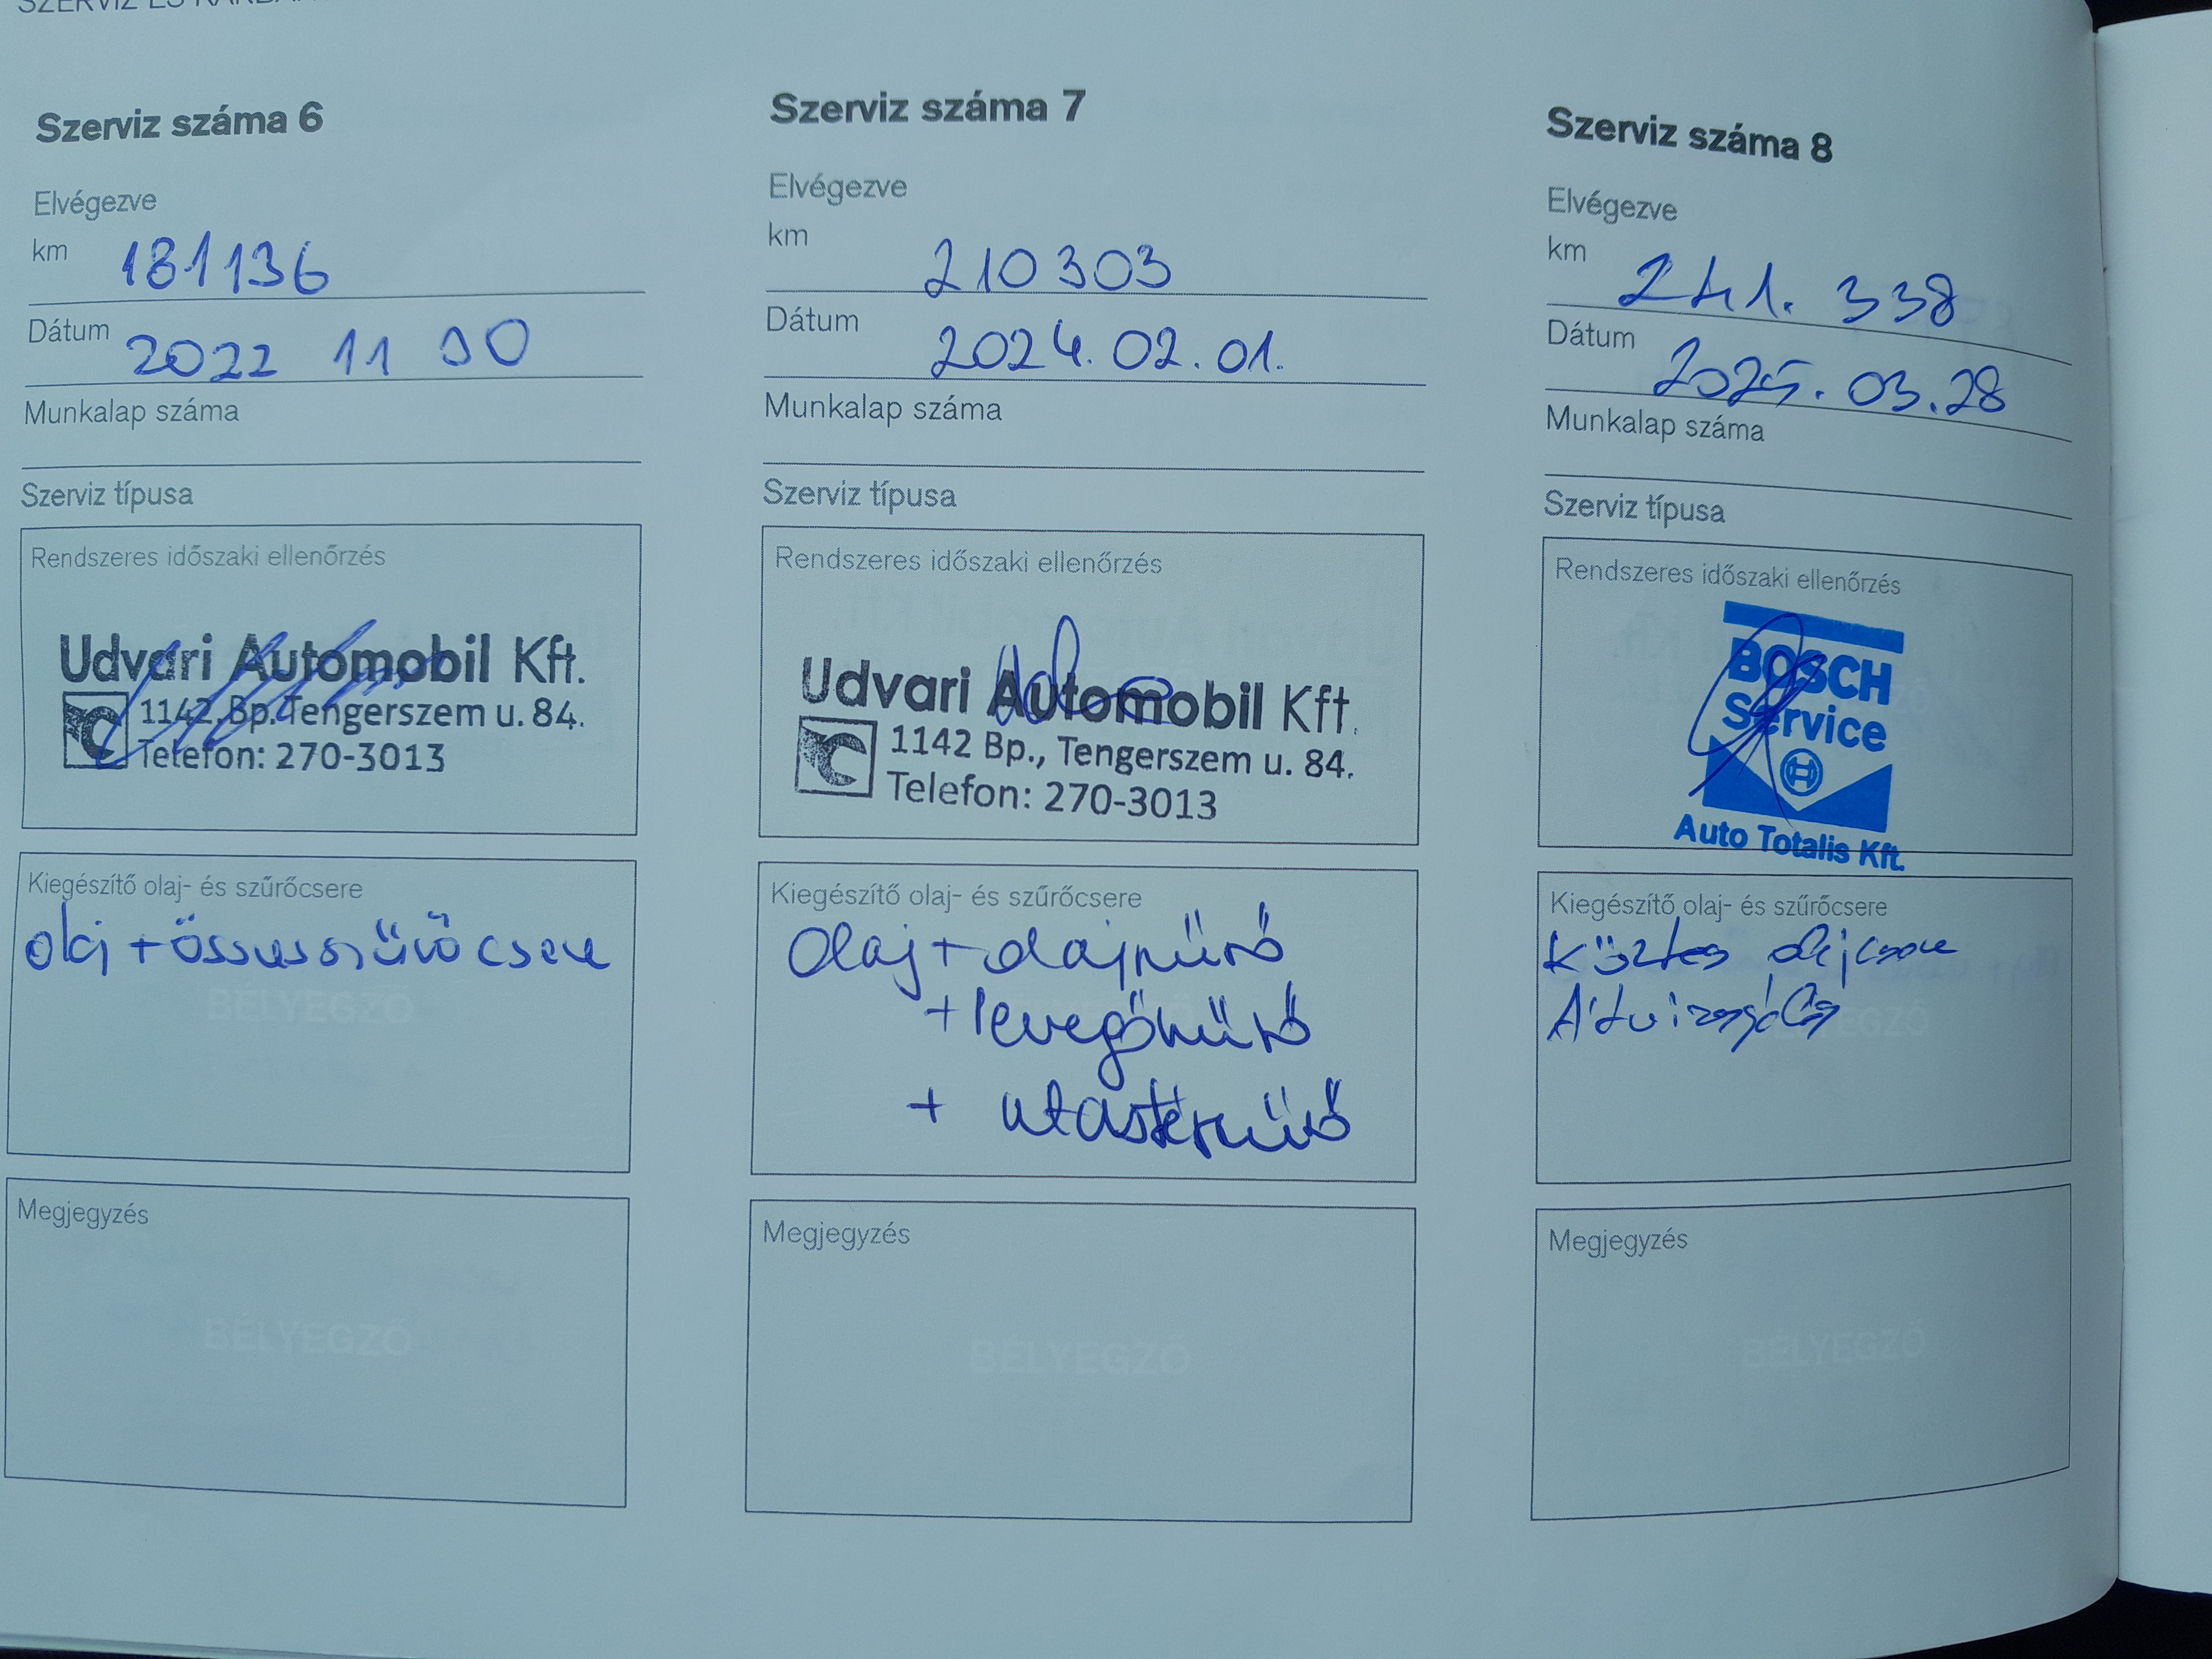 Szerviz száma 6
Elvégezve
km 181136
Dátum 2022 11 30
Munkalap száma
Szerviz típusa
Rendszeres időszaki ellenőrzés
Udvari Automobil Kft.
1142.Bp.Tengerszem u. 84.
Telefon: 270-3013
Kiegészítő olaj- és szűrőcsere
olaj + összes szűrő csere
BÉLYEGZŐ
Megjegyzés
BÉLYEGZŐ
Szerviz száma 7
Elvégezve
km 210303
Dátum 2024.02.01.
Munkalap száma
Szerviz típusa
Rendszeres időszaki ellenőrzés
Udvari Automobil Kft.
1142 Bp., Tengerszem u. 84.
Telefon: 270-3013
Kiegészítő olaj- és szűrőcsere
Olaj + olajszűrő
+ levegőszűrő
+ utastérszűrő
Megjegyzés
BÉLYEGZŐ
Szerviz száma 8
Elvégezve
km 241.338
Dátum 2025.03.28
Munkalap száma
Szerviz típusa
Rendszeres időszaki ellenőrzés
BOSCH
Service
Auto Totalis Kft.
Kiegészítő olaj- és szűrőcsere
Köztes olajcsere
Átvizsgálás
Megjegyzés
BÉLYEGZŐ